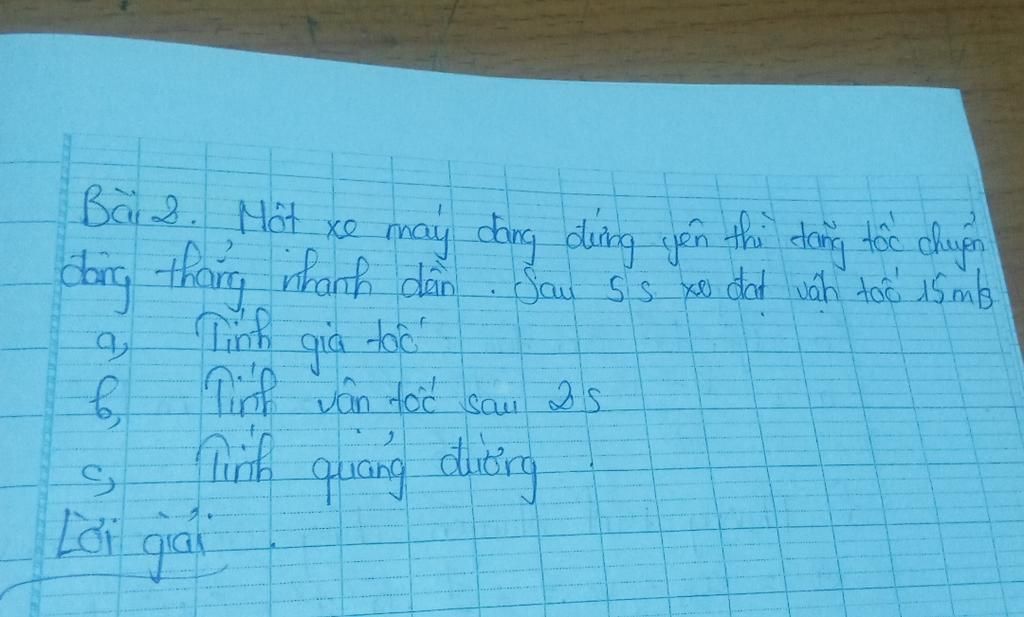 Bài 2. Một xe máy đang đứng yên thì tăng tốc chuyển
động thẳng nhanh dần. Sau 5s xe đạt vận tốc 15m/s
a, Tính gia tốc
b, Tính vận tốc sau 2s
c, Tính quảng đường
Lời giải